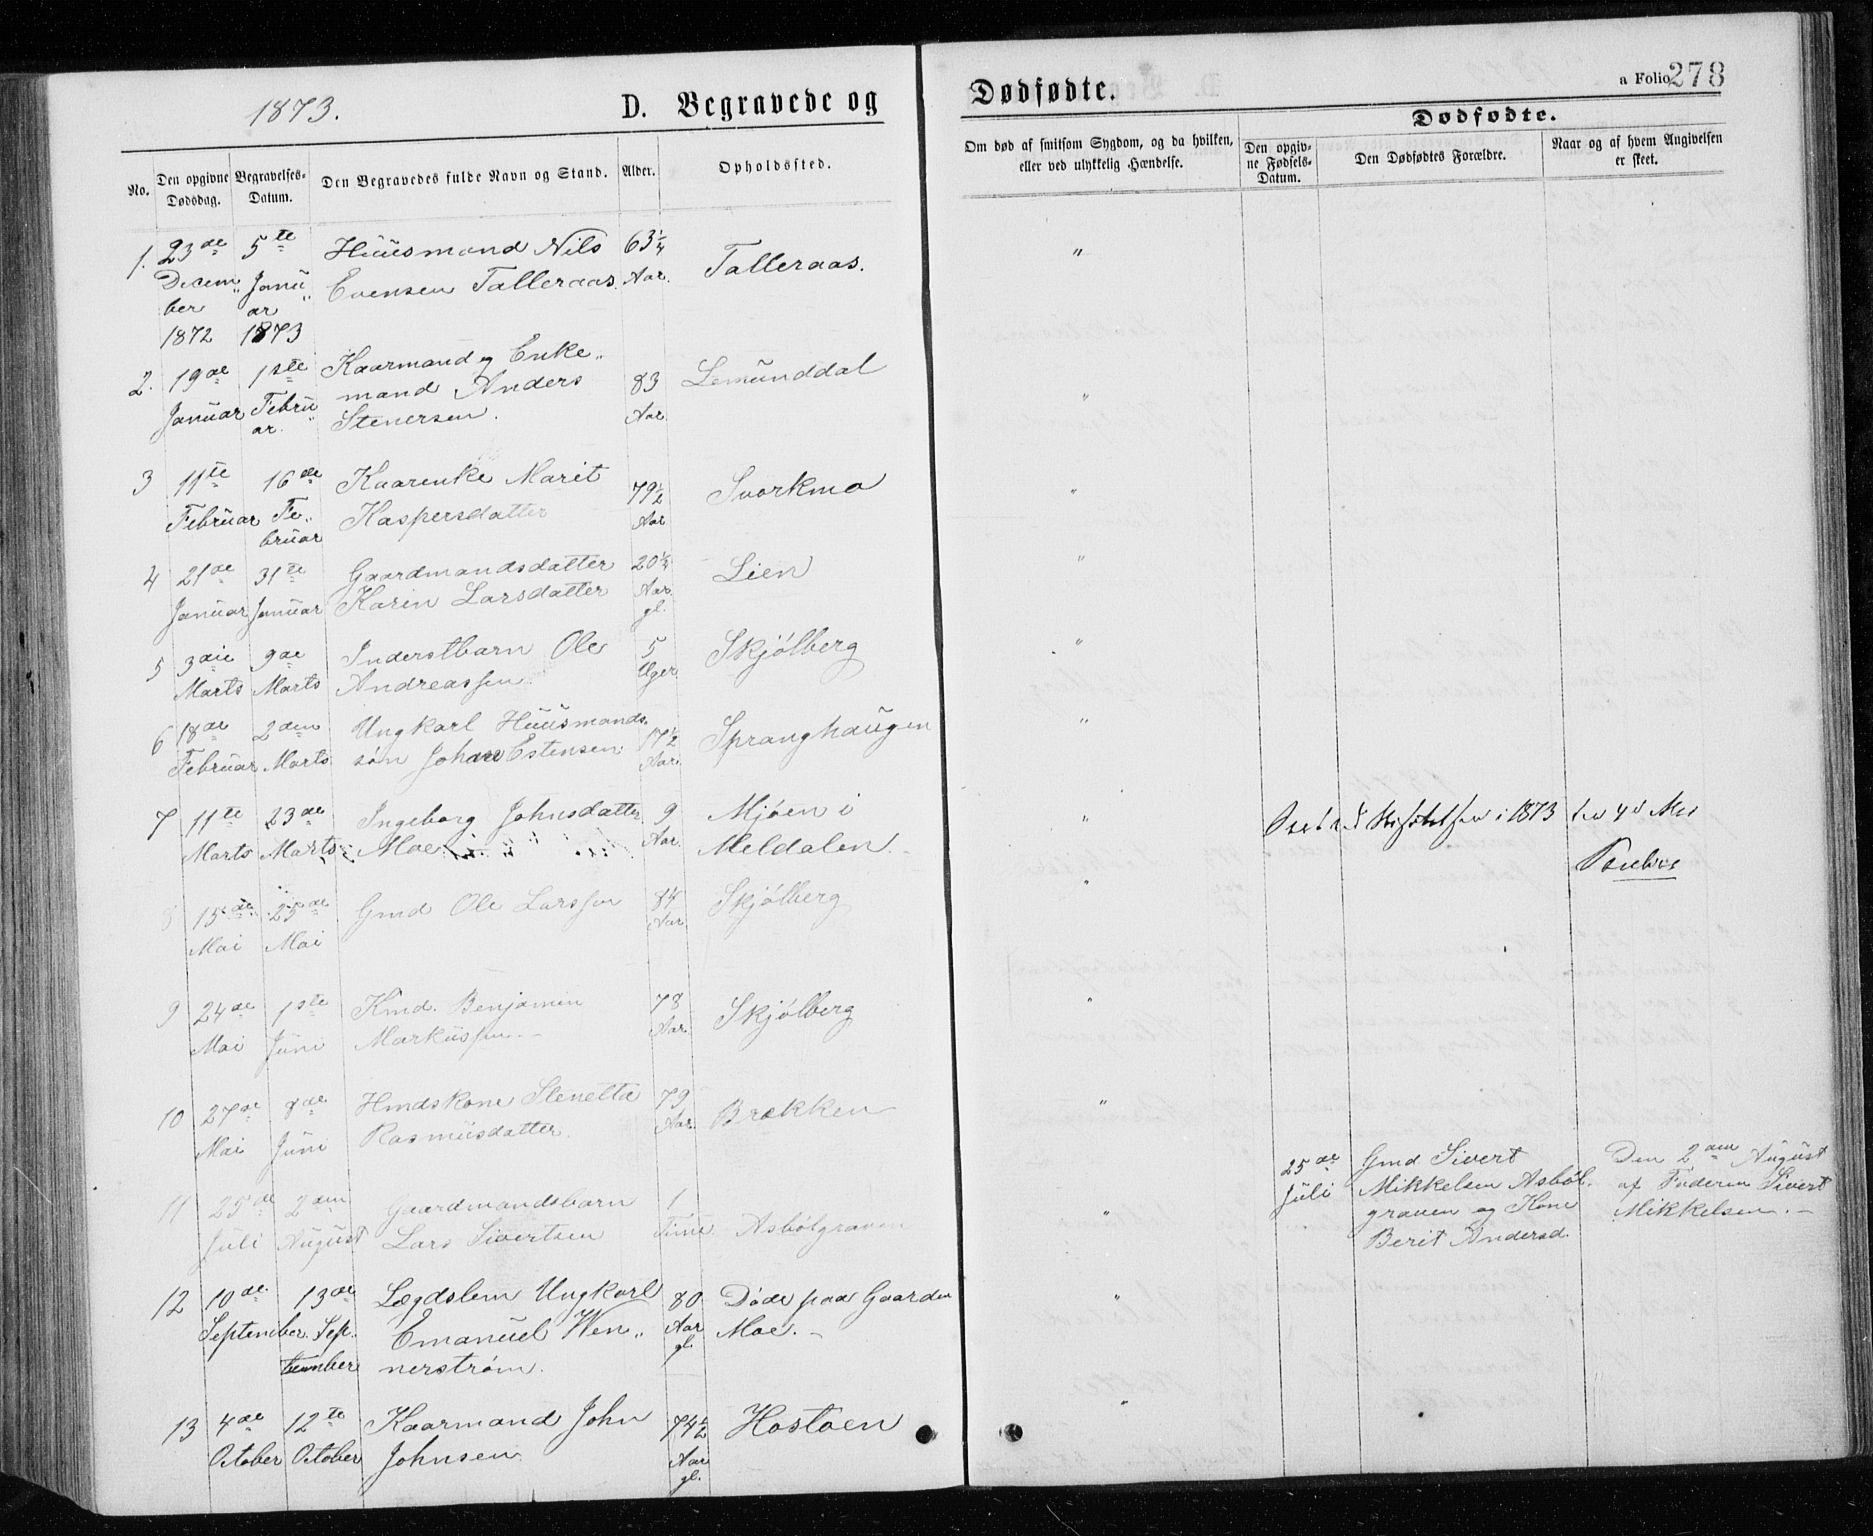 1873.
D. Begravede og
Dødfødte.
a Folio 278
No.
Den opgivne Dødsdag.
Begravelses-Datum.
Den Begravedes fulde Navn og Stand.
Alder.
Opholdssted.
Om død af smitsom Sygdom, og da hvilken,
eller ved ulykkelig Hændelse.
Dødfødte.
Den opgivne Fødsels-Datum.
Den Dødfødtes Forældre.
Naar og af hvem Angivelsen
er skeet.
1. 23de 5te Huusmand Nils 63¼ Talleraas. "
Decem„ Janu„ Evensen Talleraas. Aar.
ber ar
1872 1873
2. 19de 1ste Kaarmand og Enke„ 83 Lemunddal "
Januar Febru„ mand Anders Aar.
ar. Stenersen.
3 11te 16de Kaarenke Marit 79½ Svorkmo "
Februar Fe„ Kaspersdatter Aar
bruar
4 21de 31te Gaardmandsdatter 20¼ Lien "
Januar Januar Karin Larsdatter Aar.
gl.
5 3die 9de Inderstbarn Ole 5 Skjølberg "
Marts Marts Andreassen. Uger
6 18de 2den Ungkarl Huusmands„ 17½ Spranghaugen "
Februar Marts søn Johan Estensen. Aar.
7 11te 23de Ingeborg Johnsdatter 9 Mjøen i "
Marts Marts Moe Aar. Meldalen.
i 1873 den
8 15de 25de Gmd Ole Larssen 84 Skjølberg "
Mai Mai Aar
9 24de 1ste Kmd. Benjamin 78 Skjølberg "
Mai Juni Markussen. Aar.
10 27de 8de Hmdskone Stenetta 79 Brækken "
Mai Juni Rasmusdatter. Aar.
11 25de 2den Gaardmandsbarn 1 Asbølgraven "
Juli August Lars Sivertsen Time
25de Gmd Sivert Den 2den August
Juli Mikkelsen Asbøl„ af Faderen Sivert
graven og Kone Mikkelsen.
Berit Andersd.
12 10de 13de Lægdslem Ungkarl 80 Døde paa Gaarden "
September. Sep. Emanuel Wen„ Aar Moe.
tember nerstrøm. gl.
13 4de 12te Kaarmand John 74½ Hostoen "
October October Johnsen Aar
gl.